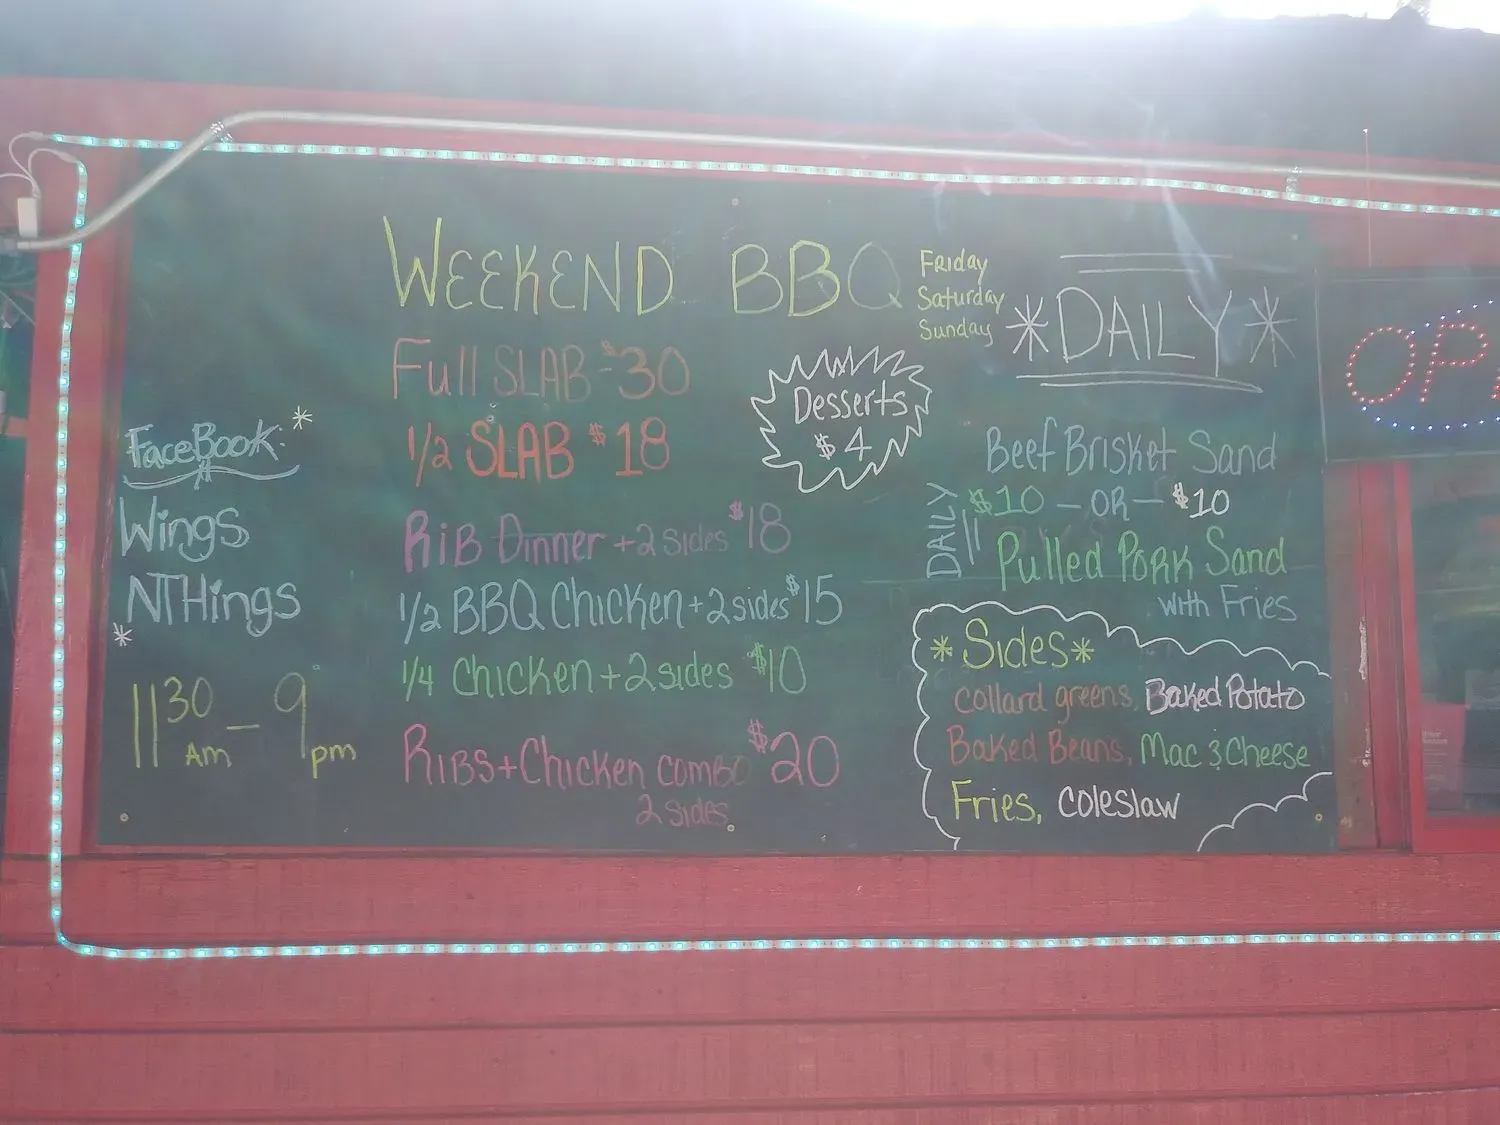 WEEKEND BBQ
Friday
Saturday
Sunday
Full SLAB $30
1/2 SLAB $18
Desserts
$4
RiB Dinner +2 sides $18
1/2 BBQ Chicken +2 sides $15
1/4 Chicken +2 sides $10
RiBS + Chicken combo $20
2 sides
FaceBook
Wings
NTHings
11 30 Am - 9 pm
*DAILY*
Beef Brisket Sand
DAILY
$10 - OR - $10
Pulled Pork Sand
with Fries
*Sides*
collard greens, Baked Potato
Baked Beans, Mac & Cheese
Fries, coleslaw
OP